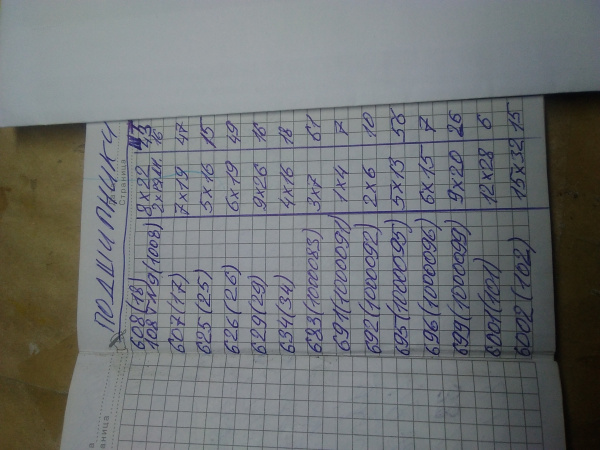 Страница
ПОДШИПНИКИ
608 (18) 8x22
108 TNg (1008) 16
607 (17) 7x19 47
625 (25) 5x16 15
626 (26) 6x19 49
629 (29) 9x26 16
634 (34) 4x16 18
683 (1000083) 3x7 61
691 (1000091) 1x4 7
692 (1000092) 2x6 10
695 (1000095) 5x13 56
696 (1000096) 6x15 7
699 (1000099) 9x20 26
6001 (101) 12x28 6
6002 (102) 15x32 15